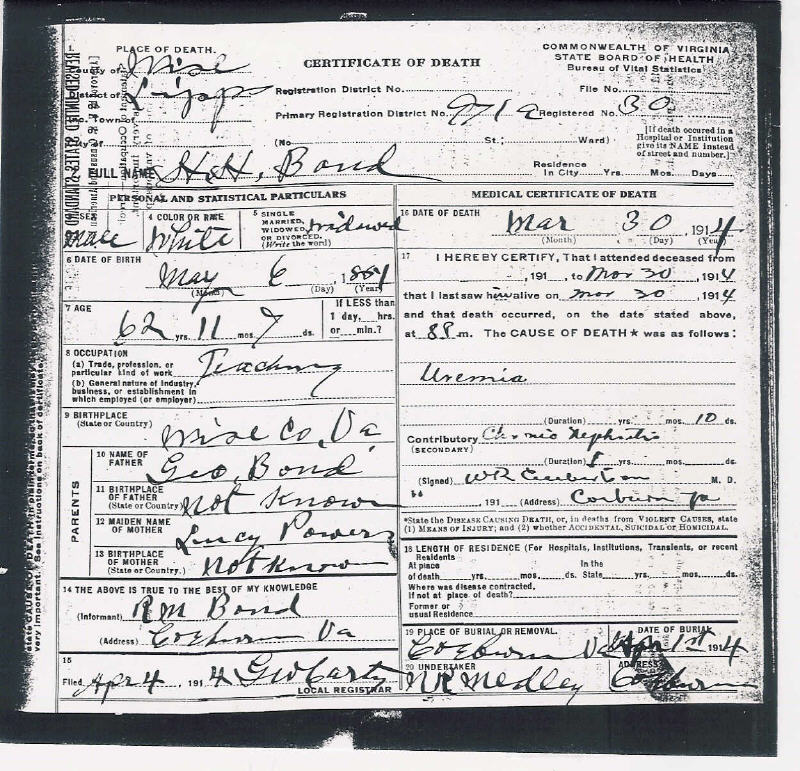 1 PLACE OF DEATH.
County of Wise
District of Lipps
or
Inc. Town of
CERTIFICATE OF DEATH
COMMONWEALTH OF VIRGINIA
STATE BOARD OF HEALTH
Bureau of Vital Statistics
Registration District No.
File No.
Primary Registration District No. 971a Registered No. 30
(No. St.; Ward)
[If death occured in a
Hospital or Institution
give its NAME instead
of street and number.]
FULL NAME H.H. Bond
Residence
In City Yrs. Mos. Days
PERSONAL AND STATISTICAL PARTICULARS
SEX
male
4 COLOR OR RACE
White
5 SINGLE
MARRIED,
WIDOWED,
OR DIVORCED.
(Write the word)
widowed
6 DATE OF BIRTH
May 6, 1851
(Month) (Day) (Year)
7 AGE
62 yrs. 11 mos. 7 ds.
If LESS than
1 day, hrs.
or min.?
8 OCCUPATION
(a) Trade, profession, or
particular kind of work
Teaching
(b) General nature of industry,
business, or establishment in
which employed (or employer)
9 BIRTHPLACE
(State or Country)
Wise Co, Va
PARENTS
10 NAME OF
FATHER
Geo, Bond
11 BIRTHPLACE
OF FATHER
(State or Country)
Not Known
12 MAIDEN NAME
OF MOTHER
Lucy Powers
13 BIRTHPLACE
OF MOTHER
(State or Country.)
Not Know
14 THE ABOVE IS TRUE TO THE BEST OF MY KNOWLEDGE
(Informant) R M Bond
(Address) Coeburn Va
15
Filed Apr 4, 1914 Geo Carty
LOCAL REGISTRAR
MEDICAL CERTIFICATE OF DEATH
16 DATE OF DEATH
Mar 30, 1914
(Month) (Day) (Year)
17
I HEREBY CERTIFY, That I attended deceased from
, 191 , to Mar 30, 1914
that I last saw him alive on Mar 30, 1914
and that death occurred, on the date stated above,
at 8 P m. The CAUSE OF DEATH★ was as follows:
Uremia
(Duration) yrs. mos. 10 ds.
Contributory Chronic Nephritis
(SECONDARY)
(Duration) yrs. mos. ds.
(Signed) M. D.
191 (Address) Coeburn Va
*State the DISEASE CAUSING DEATH, or, in deaths from VIOLENT CAUSES, state
(1) MEANS OF INJURY; and (2) whether ACCIDENTAL, SUICIDAL OF HOMICIDAL.
18 LENGTH OF RESIDENCE (For Hospitals, Institutions, Transients, or recent
Residents
At place In the
of death yrs. mos. ds. State yrs. mos. ds.
Where was disease contracted,
if not at place of death?
Former or
usual Residence
19 PLACE OF BURIAL OR REMOVAL.
Coeburn Va
DATE OF BURIAL
Apr 1st 1914
20 UNDERTAKER
N R Medley
ADDRESS
Coeburn
state CAUSE OF DEATH in plain
very important. See instructions on back of certificate.
REVISED UNITED STATES STANDARD